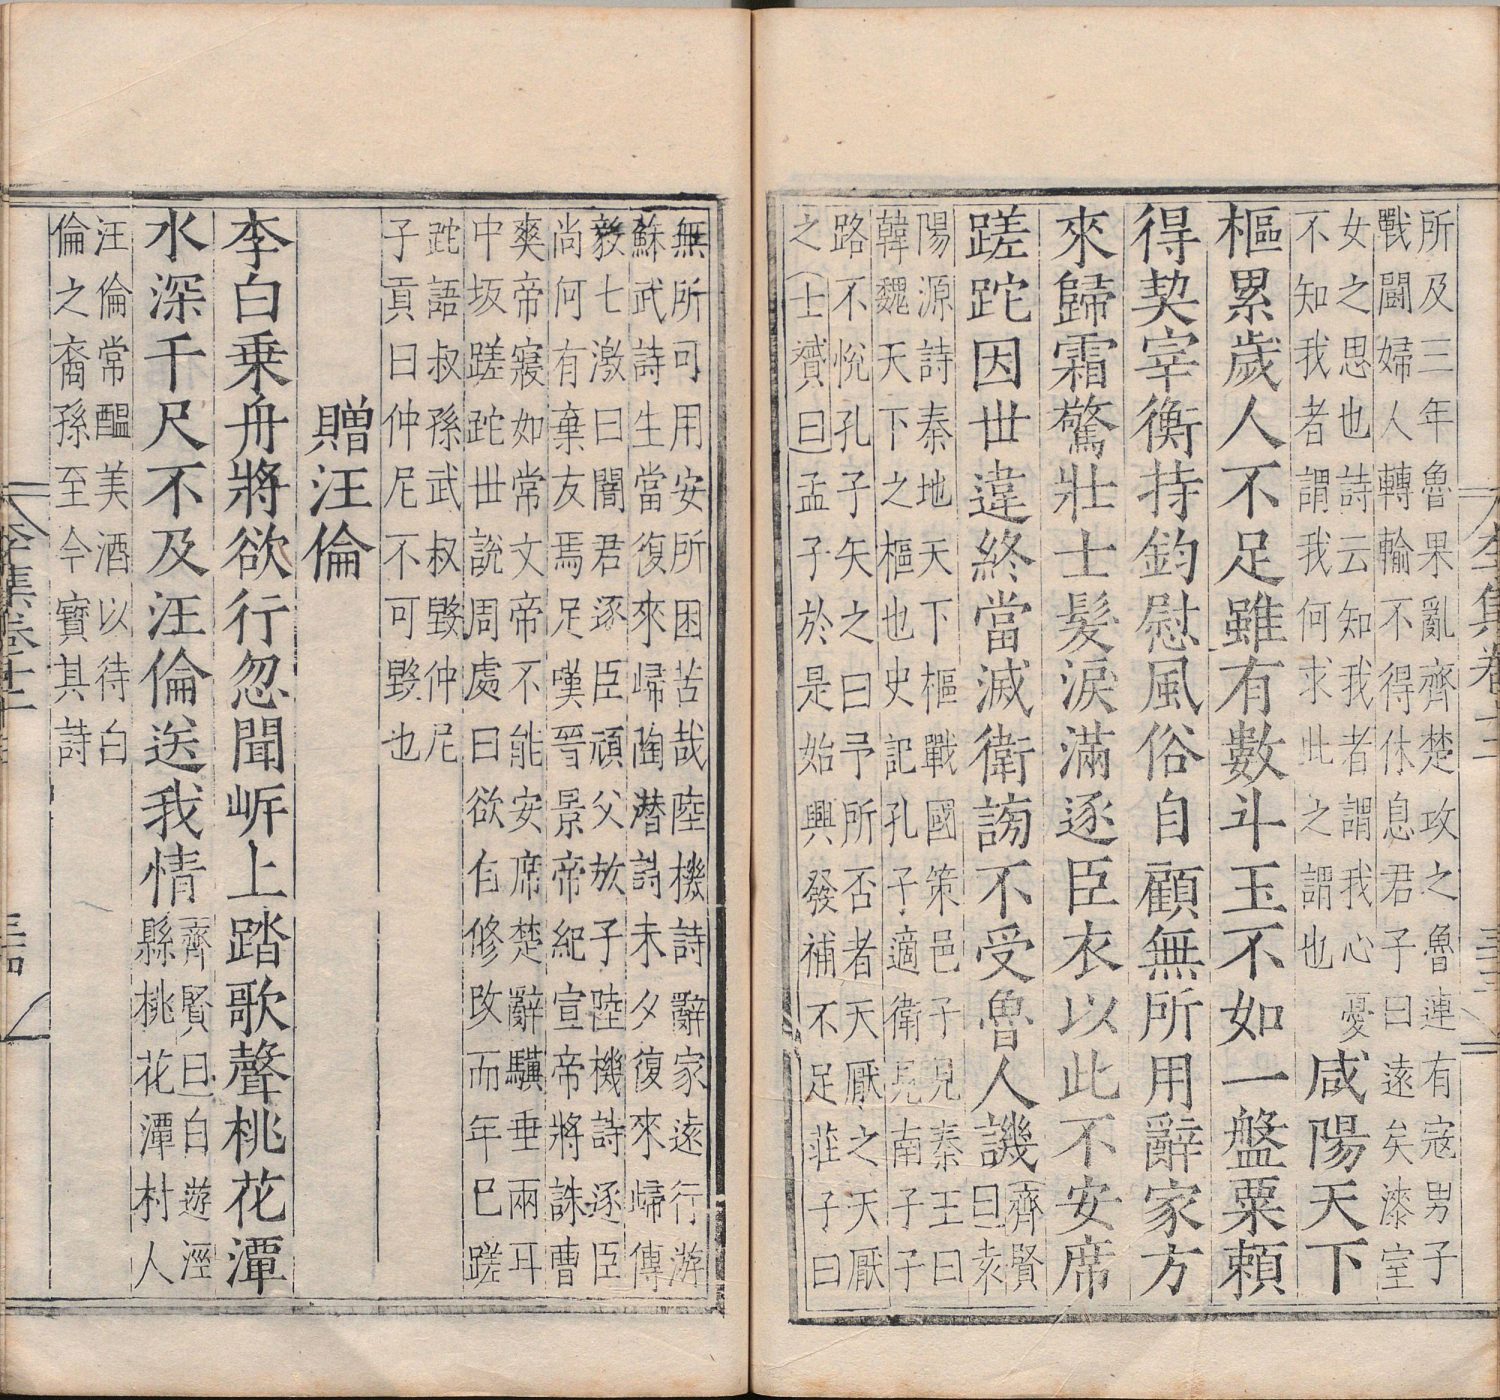 所及三年魯果亂齊楚攻之魯連有寇男子
戰鬪婦人轉輸不得休息君子曰遠矣漆室
女之思也詩云知我者謂我心憂
不知我者謂我何求此之謂也
咸陽天下
樞累歲人不足雖有數斗玉不如一盤粟頼
得契宰衡持鈞慰風俗自顧無所用辭家方
來歸霜驚壯士髮淚滿逐臣衣以此不安席
蹉跎因丗違終當滅衛謗不受魯人譏
齊賢
曰袁
陽源詩秦地天下樞戰國策邑子見秦王曰
韓魏天下之樞也史記孔子適衛見南子子
路不悅孔子矢之曰予所否者天厭之天厭
之士贇曰孟子於是始興發補不足莊子曰
無所可用安所困苦哉陸機詩辭家遠行游
蘇武詩生當復來歸陶潜詩未夕復來歸傳
毅七激曰闇君逐臣頑父放子陸機詩逐臣
尚何有棄友焉足嘆晉景帝紀宣帝將誅曹
爽帝寢如常文帝不能安席楚辭驥垂兩耳
中坂蹉跎丗說周處曰欲自修改而年已蹉
跎語叔孫武叔毀仲尼
子貢曰仲尼不可毀也
贈汪倫
李白乗舟將欲行忽聞岸上踏歌聲桃花潭
水深千尺不及汪倫送我情
齊賢曰白遊涇
縣桃花潭村人
汪倫常醞美酒以待白
倫之裔孫至今寶其詩